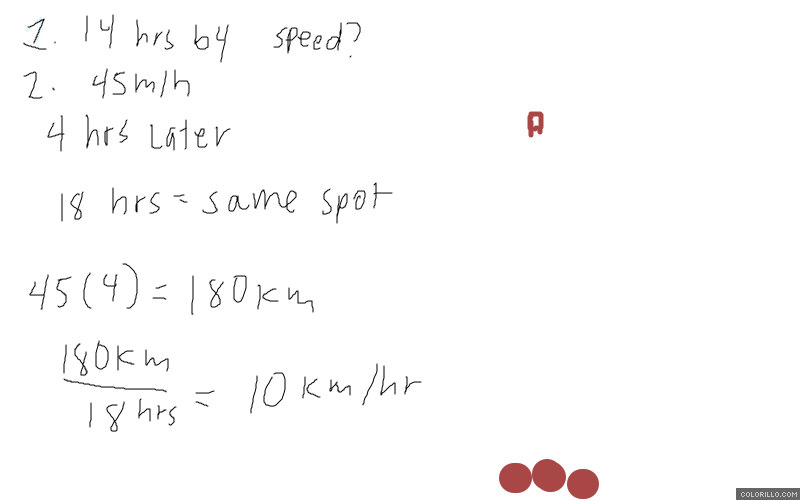 1. 14 hrs by speed?
2. 45m/h
4 hrs Later
18 hrs = same spot
45(4) = 180km
180km
18 hrs = 10 km/hr
COLORILLO.COM